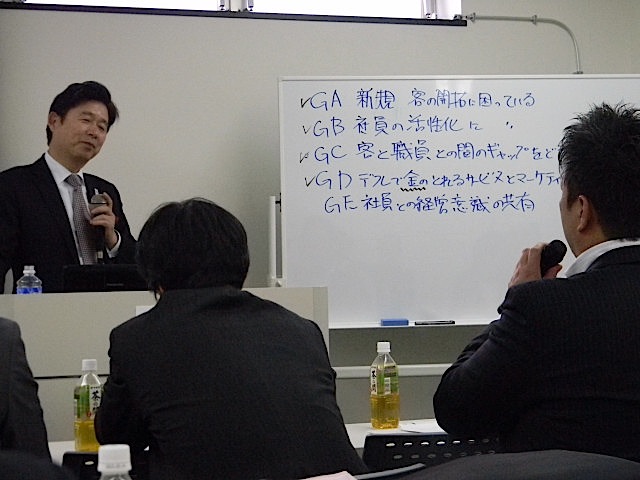 ✓GA 新規 客の開拓に困っている
✓GB 社員の活性化に 〃
✓GC 客と職員との間のギャップをど
✓GD デフレで金のとれるサービスとマーケティ
GE 社員との経営意識の共有